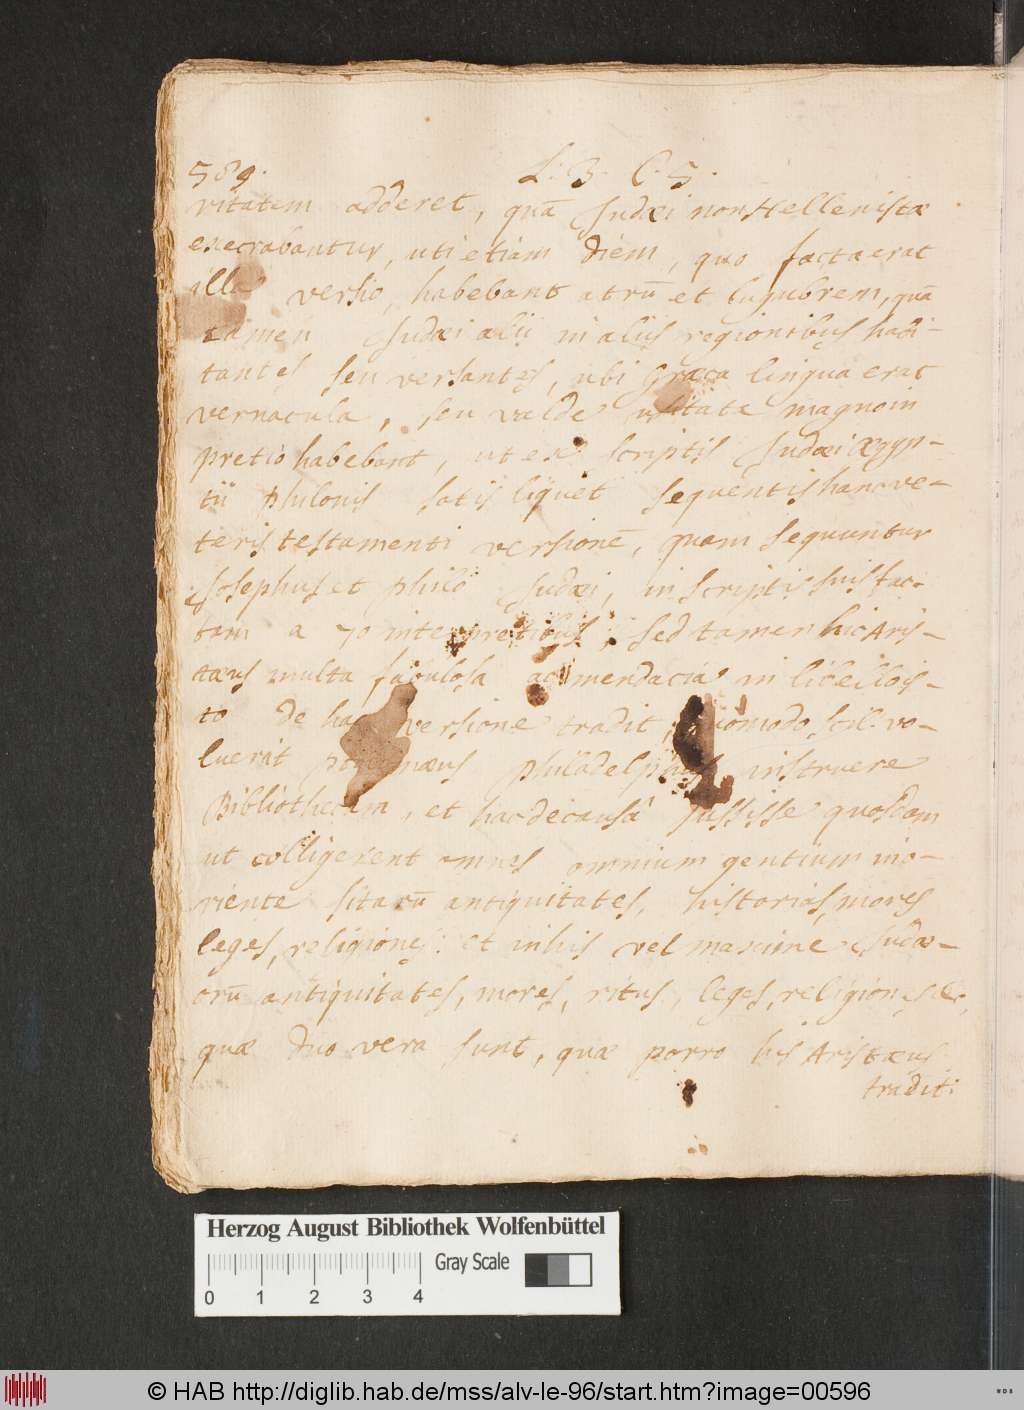 589. L. 3. C. 5.
vitatem adderet, quā Judæi non Hellenistæ
execrabantur, uti etiam diem, quo facta erat
illa versio, habebant atrū et lugubrem, quā
tamen Judæi alii in aliis regionibus habi-
tantes seu versantes, ubi Græca lingua erat
vernacula, seu valde usitata magno in
pretio habebant, ut ex scriptis Judæi Ægyp-
tii Philonis satis liquet sequentis hanc ve-
teris testamenti versionē, quam sequuntur
Josephus et Philo Judæi, in scriptis suis fac-
tam a 70 interpretibus; sed tamen hic Aris-
tæus multa fabulosa ac mendacia in libello is-
to de hac versione tradit; quomodo scil. vo-
luerit Ptolomæus Philadelphus instruere
Bibliothecam, et hac de causâ jussisse quosdam
ut colligerent omnes omnium gentium in o-
riente sitarū antiquitates, historias, mores
leges, religiones: et in his vel maxime Judæ-
orū antiquitates, mores, ritus, leges, religiones &c,
quæ duo vera sunt, quæ porro his Aristæus
tradit:
Herzog August Bibliothek Wolfenbüttel
Gray Scale
0 1 2 3 4
© HAB http://diglib.hab.de/mss/alv-le-96/start.htm?image=00596